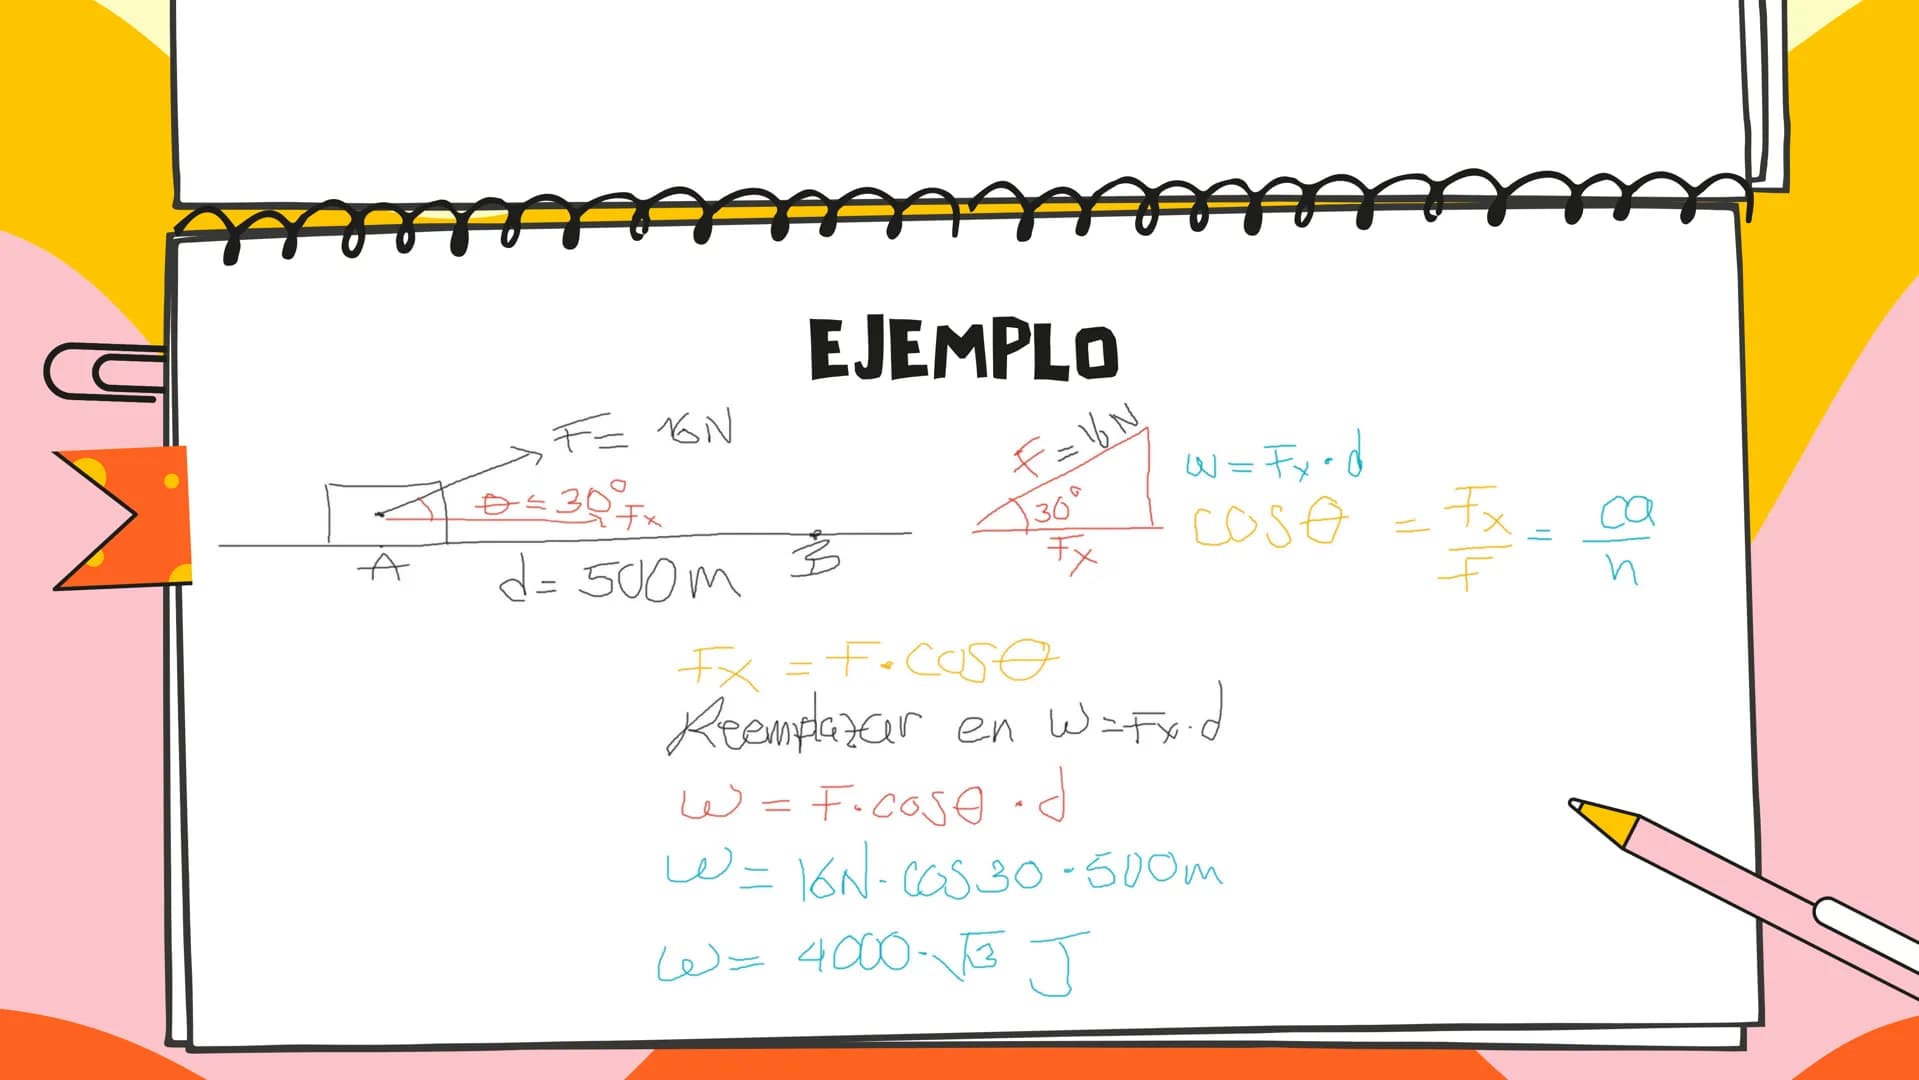 EJEMPLO
F= 16N
θ = 30° Fx
A
B
d= 500m
F = 16N
30°
Fx
W = Fx · d
cosθ = Fx/F = ca/h
Fx = F. cosθ
Reemplazar en W=Fx.d
W = F.cosθ . d
W= 16N. cos30 . 500m
W= 4000.√3 J